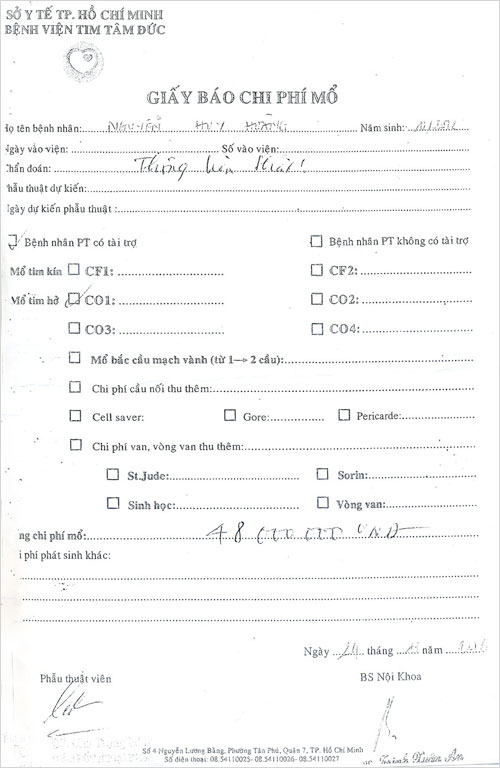 SỞ Y TẾ TP. HỒ CHÍ MINH
BỆNH VIỆN TIM TÂM ĐỨC
GIẤY BÁO CHI PHÍ MỔ
Họ tên bệnh nhân: NGUYỄN HUY HOÀNG Năm sinh:
Ngày vào viện: Số vào viện:
Chẩn đoán: Thông liên thất
Phẫu thuật dự kiến:
Ngày dự kiến phẫu thuật :
Bệnh nhân PT có tài trợ Bệnh nhân PT không có tài trợ
Mổ tim kín CF1: CF2:
Mổ tim hở CO1: CO2:
CO3: CO4:
Mổ bắc cầu mạch vành (từ 1→ 2 cầu):
Chi phí cầu nối thu thêm:
Cell saver: Gore: Pericarde:
Chi phí van, vòng van thu thêm:
St.Jude: Sorin:
Sinh học: Vòng van:
ng chi phí mổ: 48 000 000 VNĐ
i phí phát sinh khác:
Ngày tháng năm
Phẫu thuật viên BS Nội Khoa
Số 4 Nguyễn Lương Bằng, Phường Tân Phú, Quận 7, TP. Hồ Chí Minh
Số điện thoại: 08.54110025- 08.54110026- 08.54110027